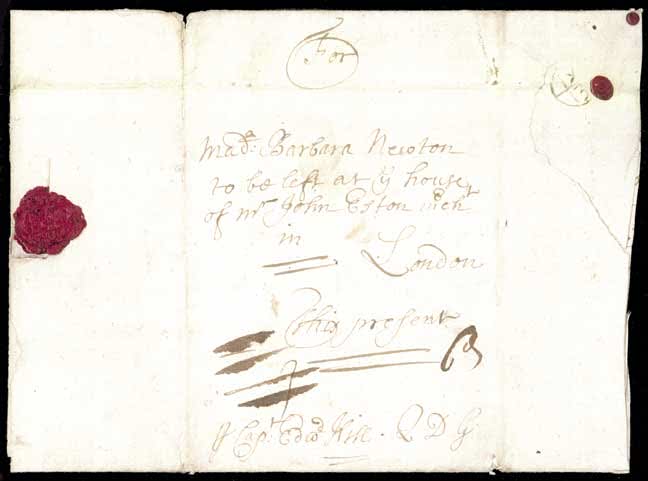 For
Mad.e Barbara Newton
to be left at ye house
of mr. John Eston
in London
this present
Capt. Edwd. Hill . Q D G